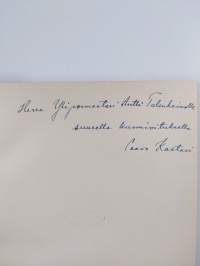 Herra Ylipormestari Antti Tulenheimolle
suurella kunnioituksella
Paavo Kastari